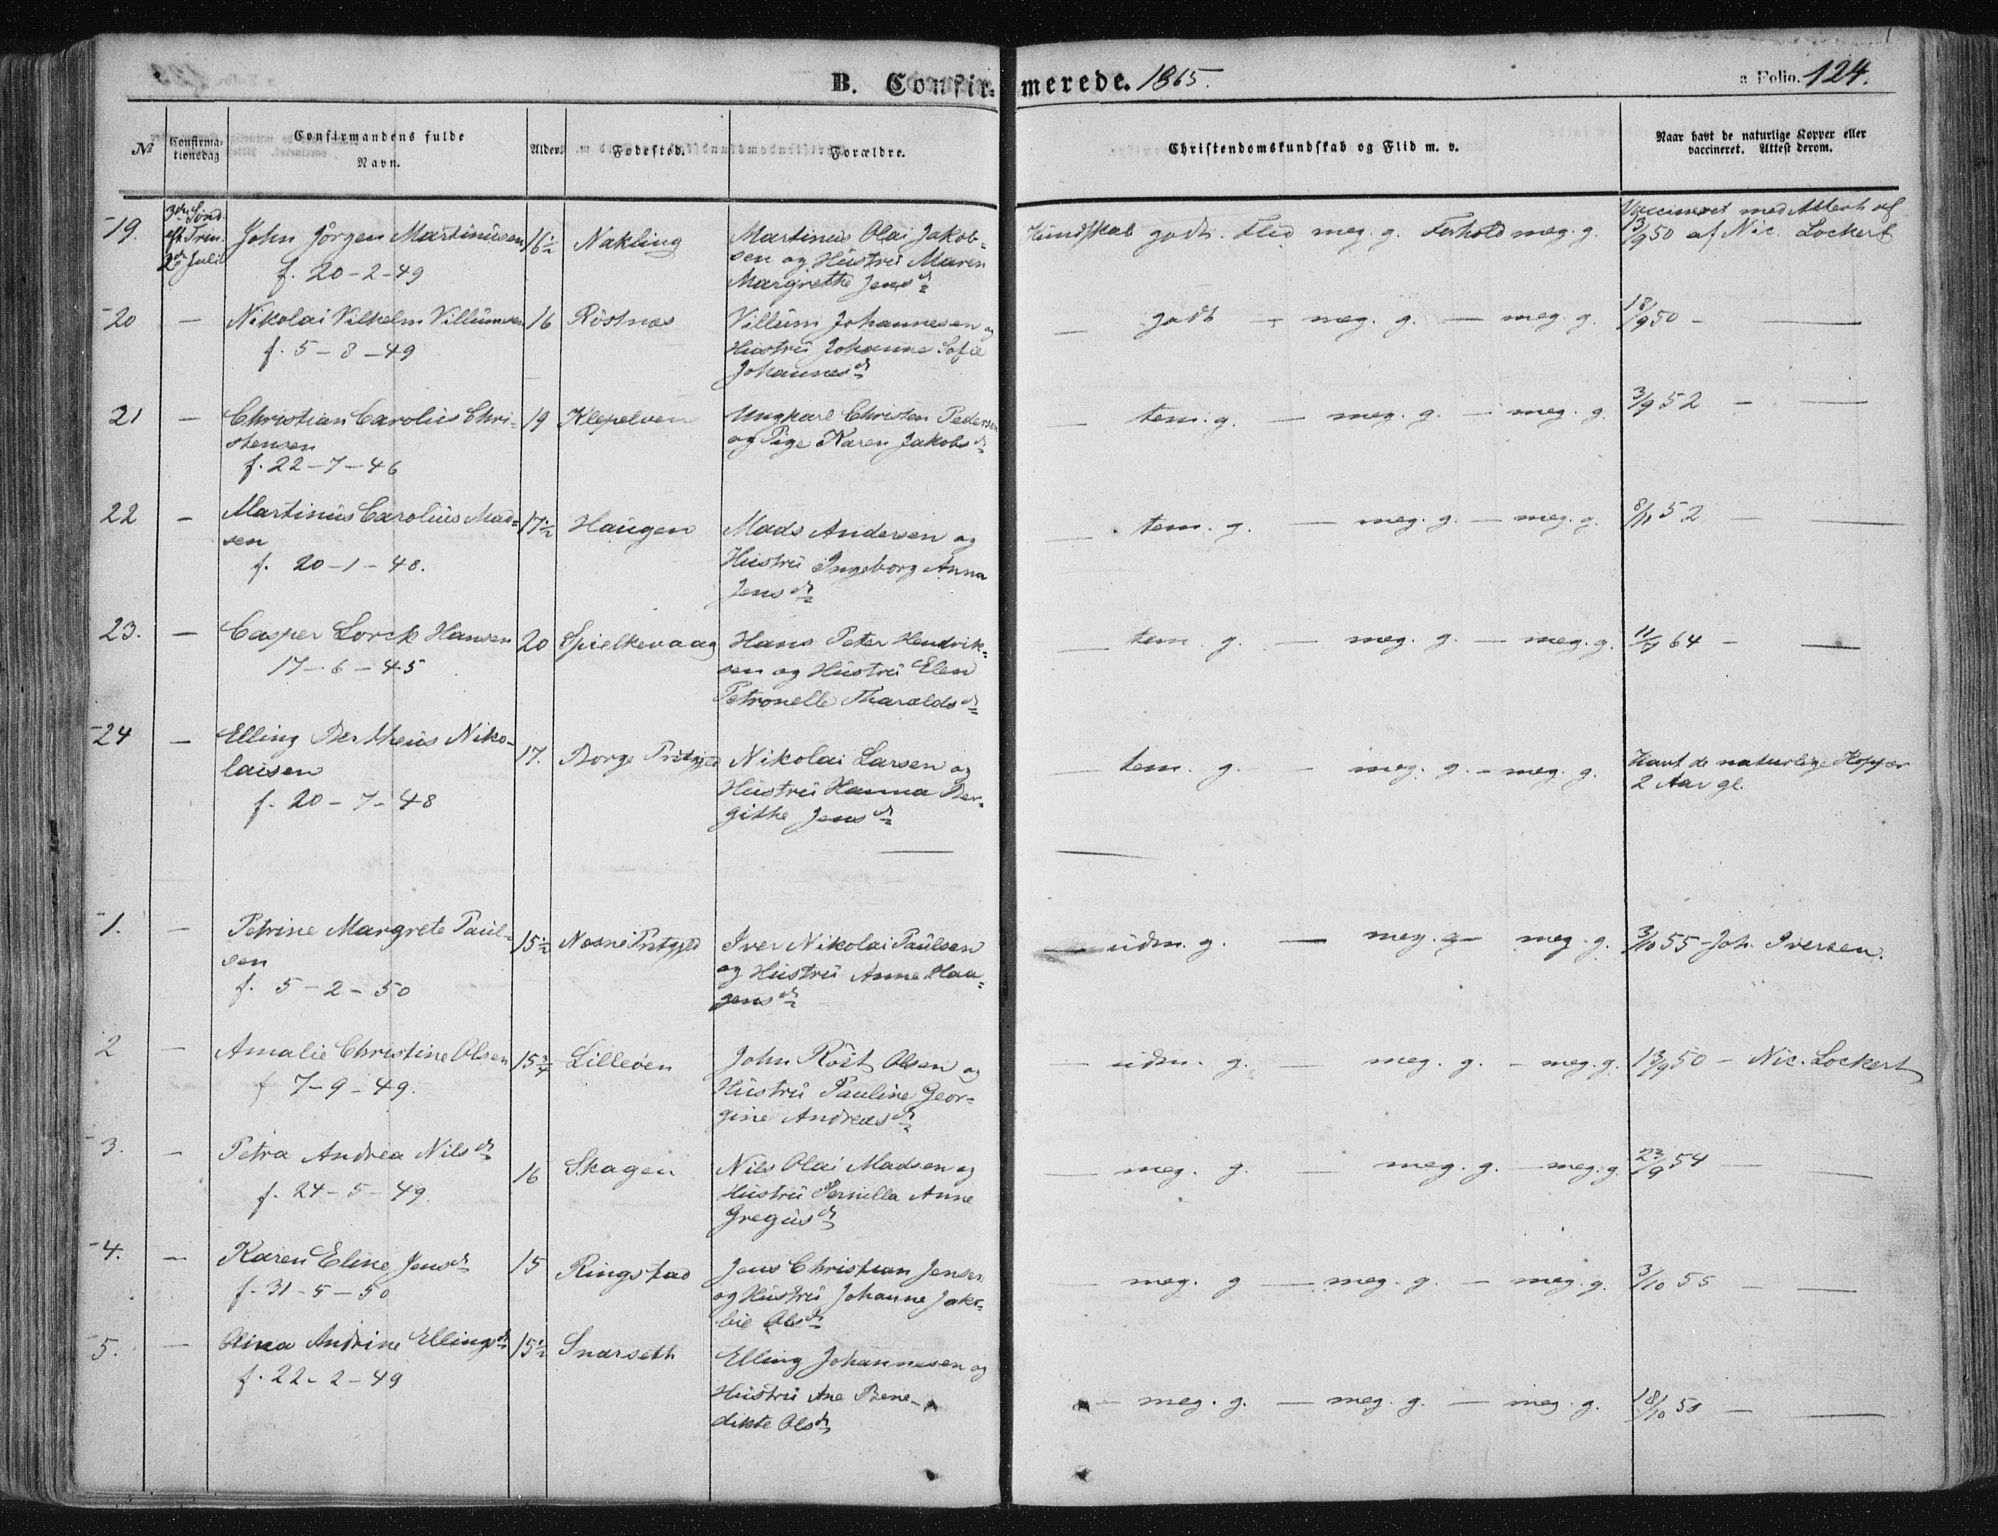 B. Confirmerede. 1865.
a Folio. 124.
No
Confirmationsdag
Confirmandens fulde Navn.
Alder.
Fødested.
Forældre.
Christendomskundskab og Flid m. v.
Naar havt de naturlige Kopper eller vaccineret. Attest derom.
19. 3die Sønd. eft. Trin. 2den Juli John Jörgen Martinusen 16½ Nakling Martinus Olai Jakob- Kundskab godt. Flid meg. g. Forhold meg. g. Vaccineret med Attest af
f. 20-2-49 sen og Hustrü Maren 13/9 50 af Nic. Lockert
Margrethe Jensd.
20 — Nikolai Vilhelm Villümsen 16 Röstnæs Villüm Johannesen og — godt — meg. g. — meg. g. 18/9 50 — —
f. 5-8-49 Hustrü Johanne Sofie
Johannesd.
21 — Christian Carolüs Chri- 19 Klepelven Ungkarl Christen Pedersen — tem. g. — meg. g. — meg. g. 3/9 52 — —
stensen og Pige Karen Jakobsd.
f. 22-7-46
22 — Martinüs Carolüs Mad- 17½ Haugen Mads Andersen og — tem. g. — meg. g. — meg. g. 8/11 52 — —
sen Hüstrü Ingeborg Anna
f. 20-1-48. Jensd.
23. — Casper Lorck Hansen 20 Spielkevaag Hans Peter Hendrik- — tem. g. — meg. g. — meg. g. 11/7 64 — —
17-6-45 sen og Hüstrü Elen
Petronelle Tharaldsd.
24 — Elling Bertheüs Niko- 17. Borge Prstgjd Nikolai Larsen og — tem. g. — meg. g. — meg. g. Havt de naturlige Kopper
laisen Hüstrü Hanna Ber- 2 Aar gl.
f. 20-7-48 githe Jensd.
1. — Petrine Margrete Paul- 15½ Nesne Prstgjd Iver Nikolai Paulsen — udm. g. — meg. g — meg. g. 3/10 55 — Joh. Iversen.
sen og Hüstrü Anne Haa-
f. 5-2-50 gensd.
2 — Amalie Christine Olsen 15¾ Lilleöen John Röst Olsen og — udm. g. — meg. g. — meg. g. 13/9 50 — Nic. Lockert
f 7-9-49. Hüstrü Pauline Geor-
gine Andreasd.
3. — Petra Andrea Nilsd. 16 Skagen Nils Olai Madsen og — meg. g. — meg. g. — meg. g. 23/9 54 — —
f. 24-5-49. Hüstrü Pernilla Anne
Gregüsd.
4. — Karen Eline Jensd. 15 Ringstad Jens Christian Jensen — meg. g — meg. g. — meg. g. 3/10 55 — —
f. 31-5-50 og Hüstrü Johanne Jako-
bie Olsd.
5. — Olina Andrine Ellingsd. 15½ Snarseth Elling Johannesen og — meg. g. — meg. g. — meg. g. 18/10 50 — —
f. 22-2-49 Hüstrü Ane Bene-
dikte Olsd.